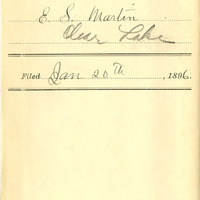 E. S. Martin
Clear Lake
Filed Jan 20th, 1896.